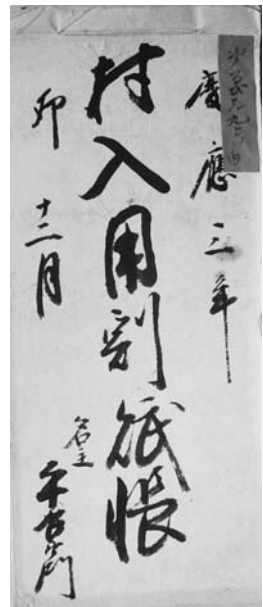 慶應三年
村入用割賦帳
卯十二月
名主